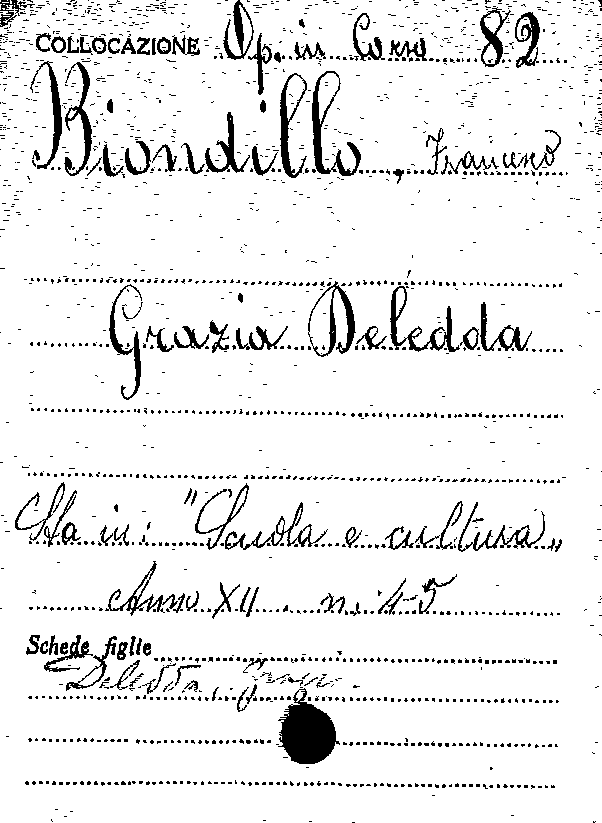 COLLOCAZIONE Op. in Corso 82
Biondillo, Francesco
Grazia Deledda
Sta in: "Scuola e cultura"
Anno XII. n. 4-5
Schede figlie
Deledda,